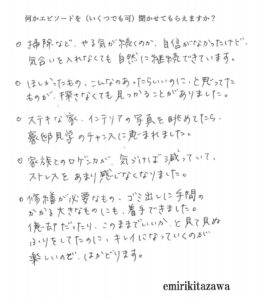 何かエピソードを（いくつでも可）聞かせてもらえますか？
○掃除など、やる気が続くのか、自信がなかったけど、
気合いを入れなくても自然に継続できています。
○ほしかったもの、こんなのあったらいいのに、と思ってた
ものが、探さなくても見つかることがありました。
○ステキな家、インテリアの写真を眺めてたら、
豪邸見学のチャンスに恵まれました。
○家族とのロゲンカが、気づけば減っていて、
ストレスをあまり感じなくなりました。
○修繕が必要なもの、ゴミ出しに手間の
かかる大きなものにも、着手できました。
億劫だったり、このままでいいか、と見て見ぬ
ふりをしてたのに、キレイになっていくのが
楽しいのか、はかどります。
emirikitazawa